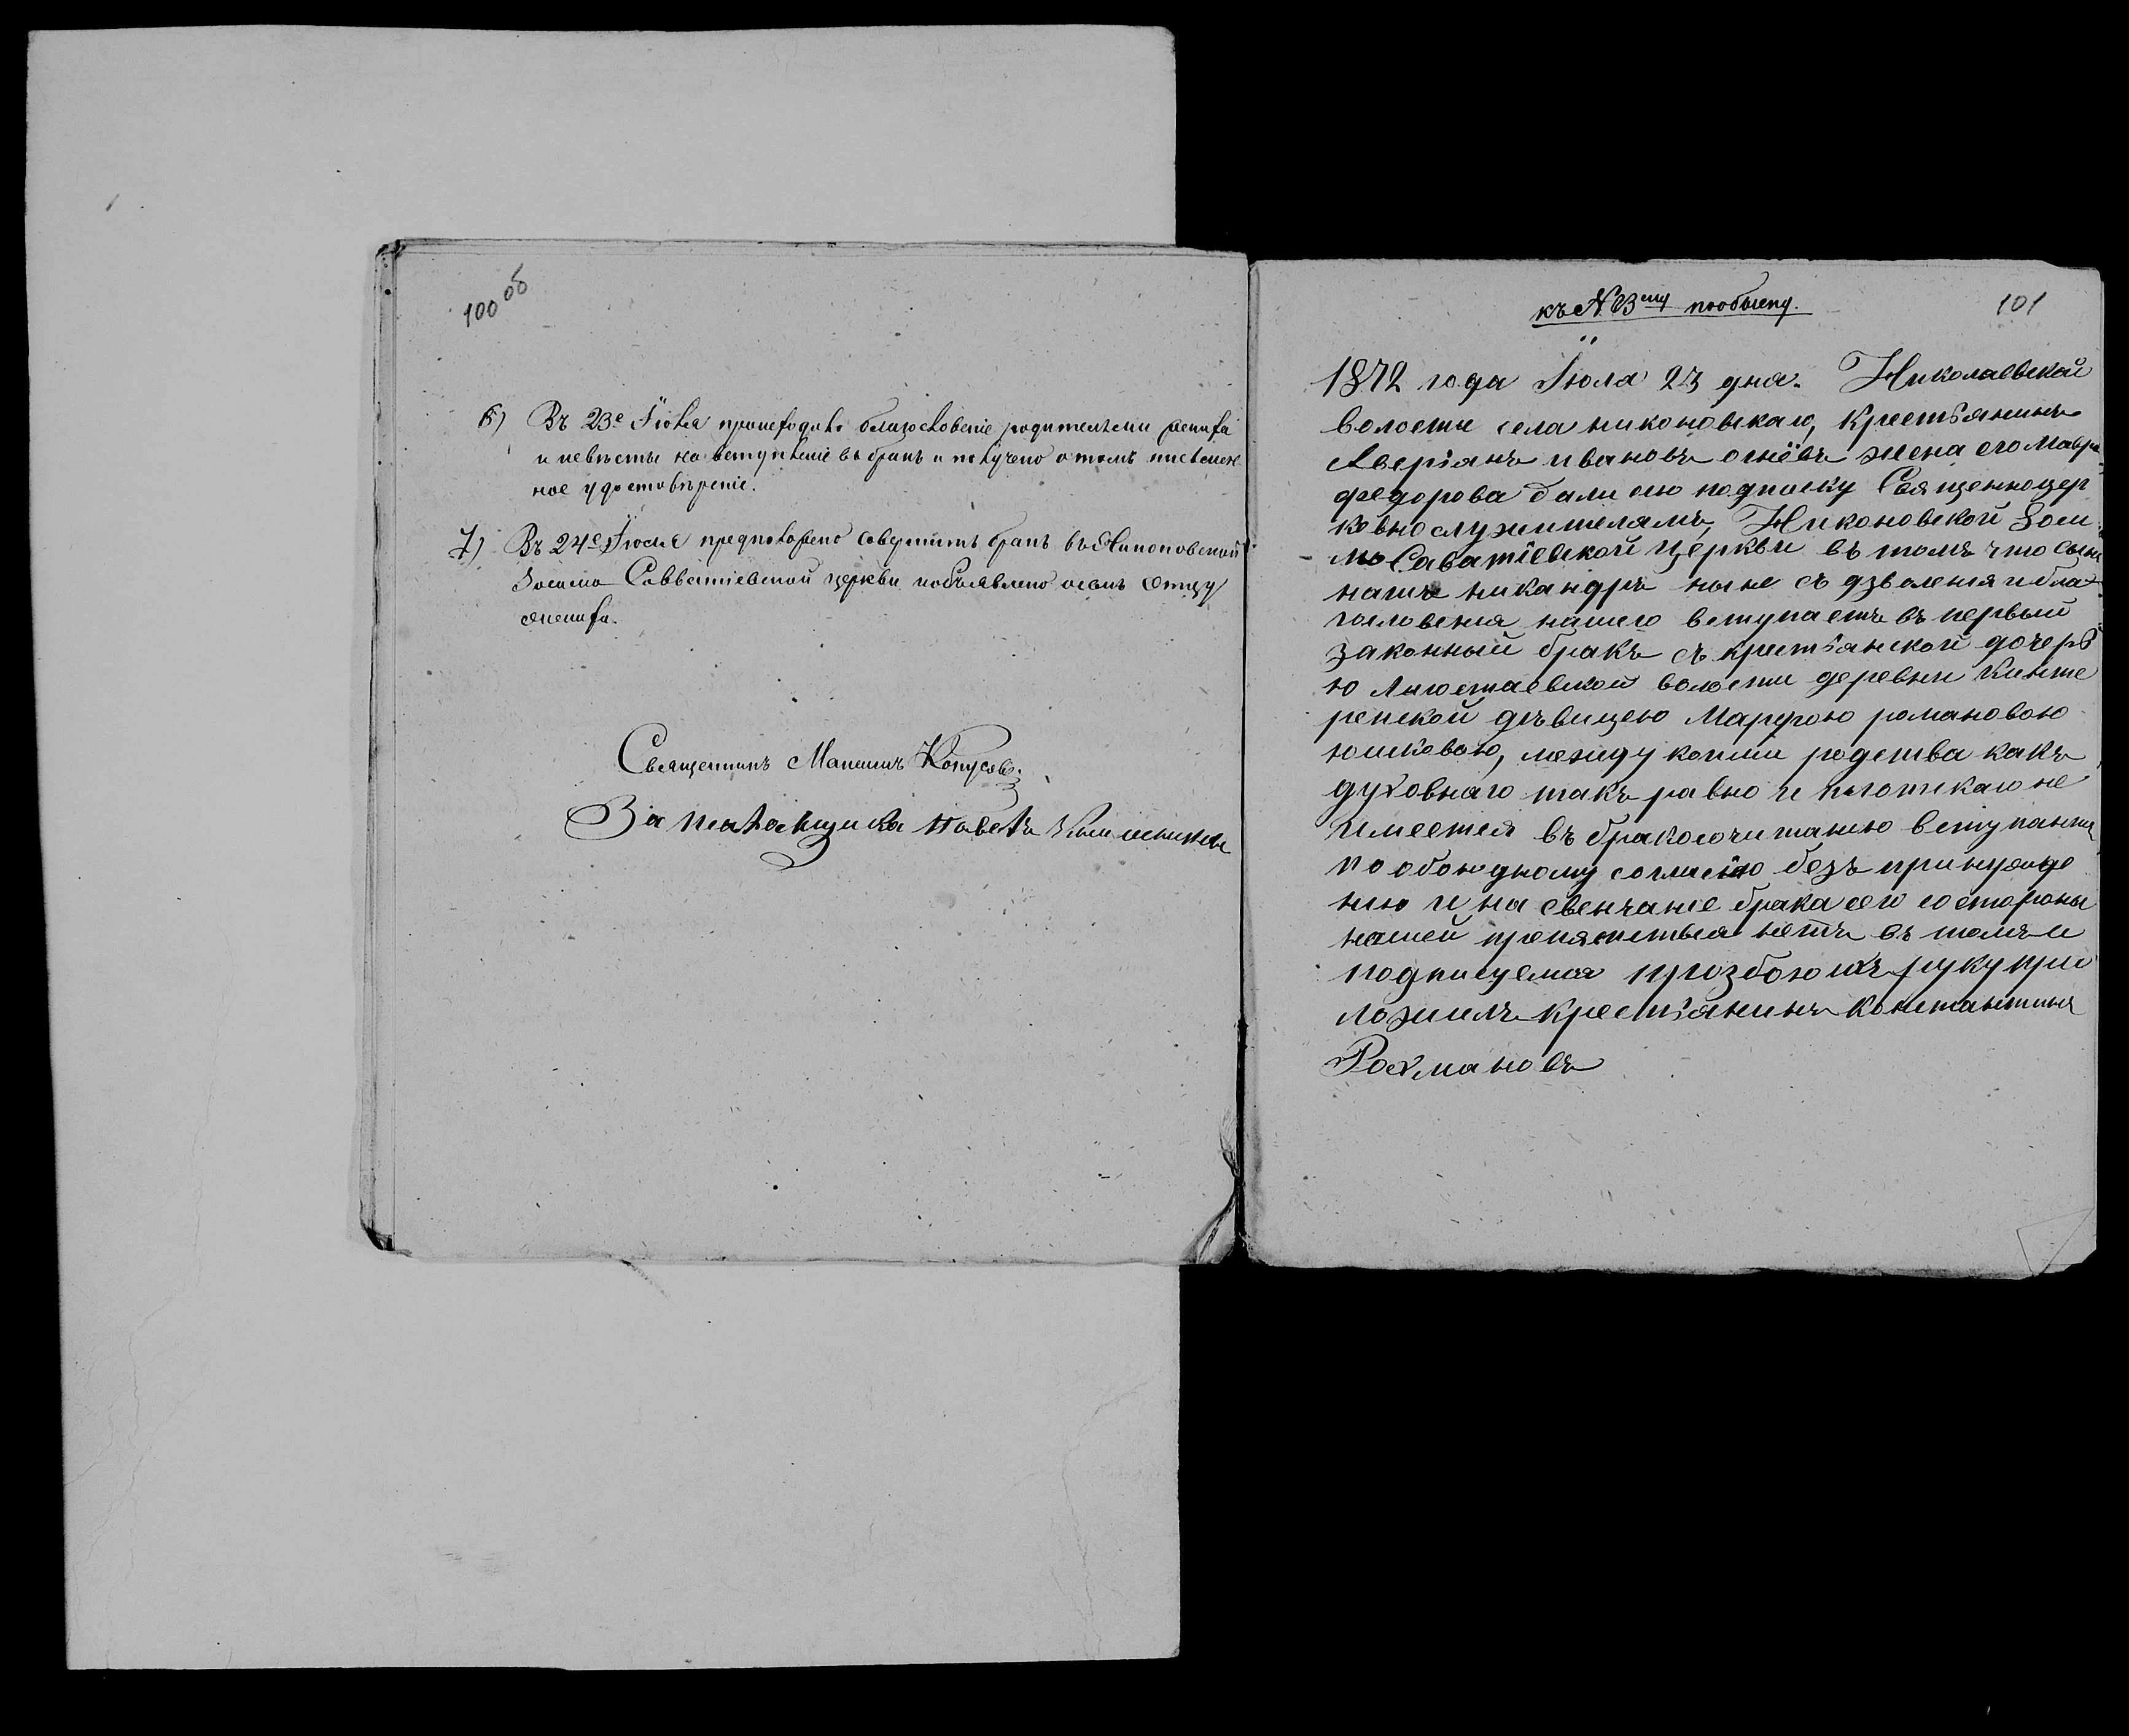 100 об
6) Въ 23е Іюля происходило благословеніе родителями жениха
и невѣсты на вступленіе въ бракъ и получено о томъ письмен
ное удостовѣреніе.
7) Въ 24е Іюля предположено совершить бракъ въ Никоновской
Зосимо Савватіевской церкви и объявлено о семъ Отцу
жениха.
Священникъ
За
къ № 3му
101
1872 года Іюля 23 дня. Николаевской
волости села никоновскаго, Крестьянинъ
Аверіанъ ивановъ огнёвъ жена его Мавра
федорова дали сию подписку Священноцер
ковнослужителямъ, Никоновской Зоси
мо Саватіевской Церкви въ томъ что сынъ
нашъ никандръ ныне съ дзволения и бла
гословения нашего вступаетъ въ первый
законный бракъ съ крестьянской дочерь
ю волости деревни
девицею Марфою романовою
между коими родства какъ
духовнаго такъ равно и плотскаго не
имеется въ бракосочитанию вступають
по обоюдному согласию безъ принужде
нию и на свенчание брака сего состороны
нашей препятствия нетъ въ томъ и
подписуемся прозбою ихъ руку при
ложилъ крестьянинъ константинъ
Рохмановъ